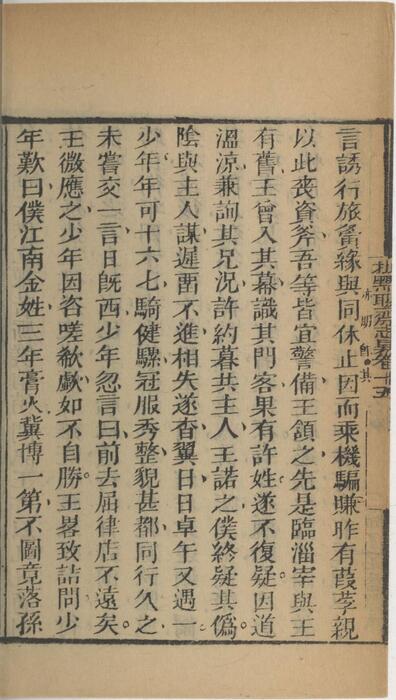 言誘行旅夤緣與同休止因而乘機騙賺昨有葭莩親
以此喪資斧吾等皆宜警備王頷之先是臨淄宰與王
有舊王曾入其幕識其門客果有許姓遂不復疑因道
溫涼兼詢其兄況許約暮共主人王諾之僕終疑其偽
陰與主人謀遲畱不進相失遂杳翼日日卓午又遇一
少年年可十六七騎健騾冠服秀整貌甚都同行久之
未嘗交一言日旣西少年忽言曰前去屈律店不遠矣
王微應之少年因咨嗟欷歔如不自勝王畧致詰問少
年歎曰僕江南金姓三年膏火冀博一第不圖竟落孫